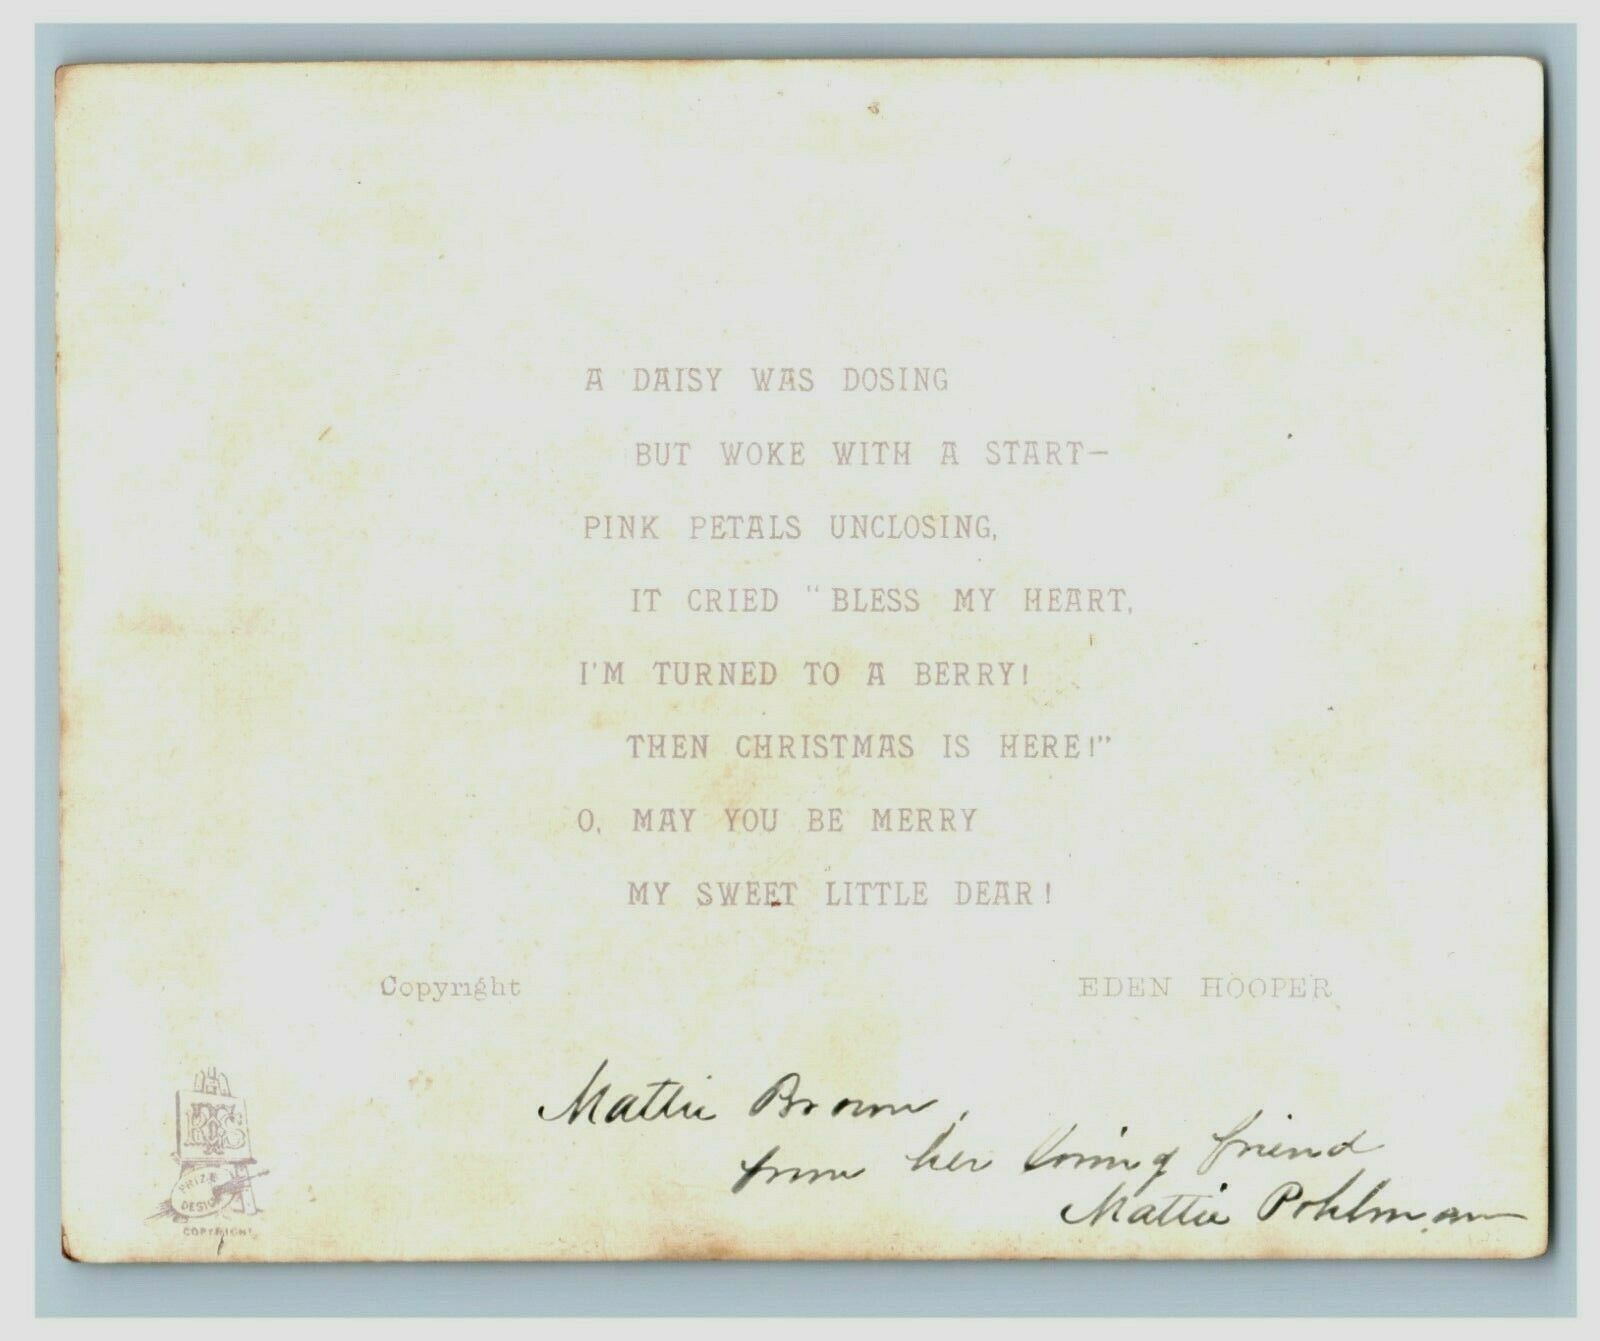 A DAISY WAS DOSING
BUT WOKE WITH A START—
PINK PETALS UNCLOSING,
IT CRIED "BLESS MY HEART,
I'M TURNED TO A BERRY!
THEN CHRISTMAS IS HERE!"
O, MAY YOU BE MERRY
MY SWEET LITTLE DEAR!
Copyright EDEN HOOPER
Mattie Brown,
from her loving friend
Mattie Pohlman
R&S
PRIZE
DESIGN
COPYRIGHT